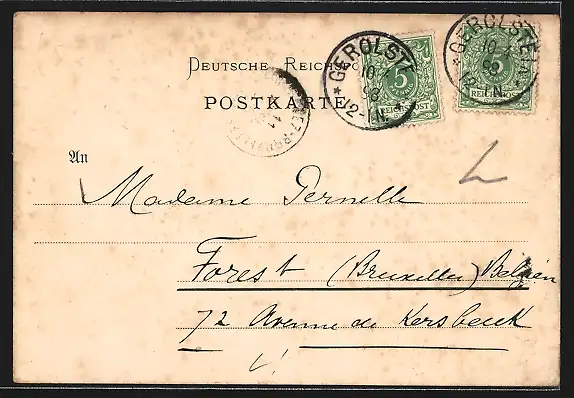 DEUTSCHE REICHSPO
POSTKARTE
GEROLSTE
10
98
12-1N.
5
REICHSPOST
GEROLSTE
10
98
1N.
5
REICHSPOST
11
An
Madame Pernelle
Forest (Bruxelles) Belgien
72 Avenue de Kersbeek